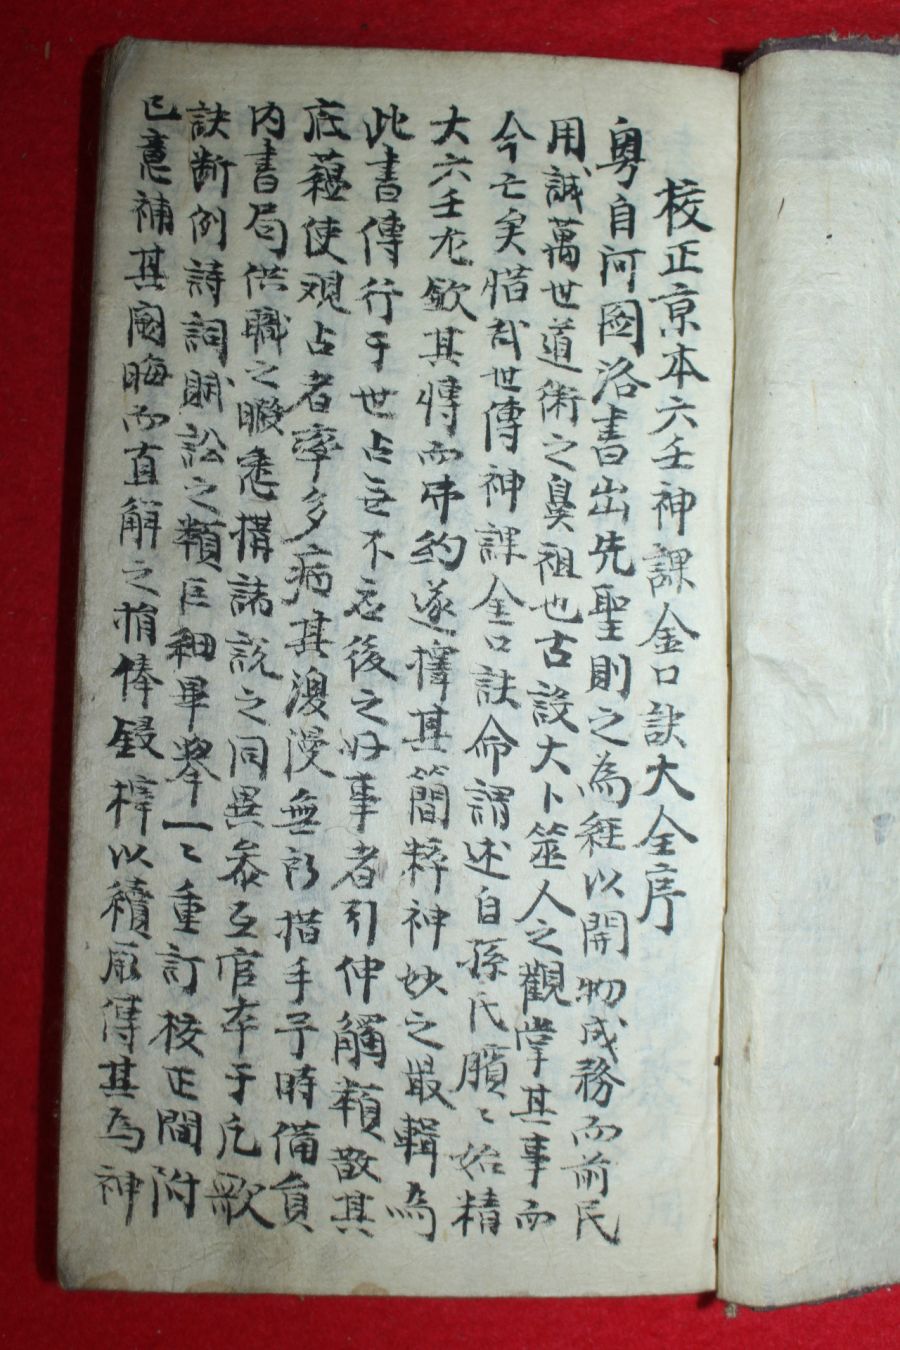 校正京本六壬神課金口訣大全序
粵自河圖洛書出先聖則之為經以開物成務而前民
用誠萬世道術之鼻祖也古設大卜筮人之觀掌其事而
今亡矣惜哉世傳神課金口訣命謂述自孫氏臏〻始精
大六壬尤欽其愽而甹約遂擇其簡粹神妙之最輯為
此書傳行于世占無不應後之好事者引伸觸類散其
底蘊使观占者率多病其漫漫無所措手予時備員
内書局供職之暇悉搆諸説之同異叅互官本于凡歌
訣断例詩詞賦訟之類巨細畢擧一〻重訂校正間附
已意補其闕晦而直解之捐俸鋟梓以續廣傳其為神